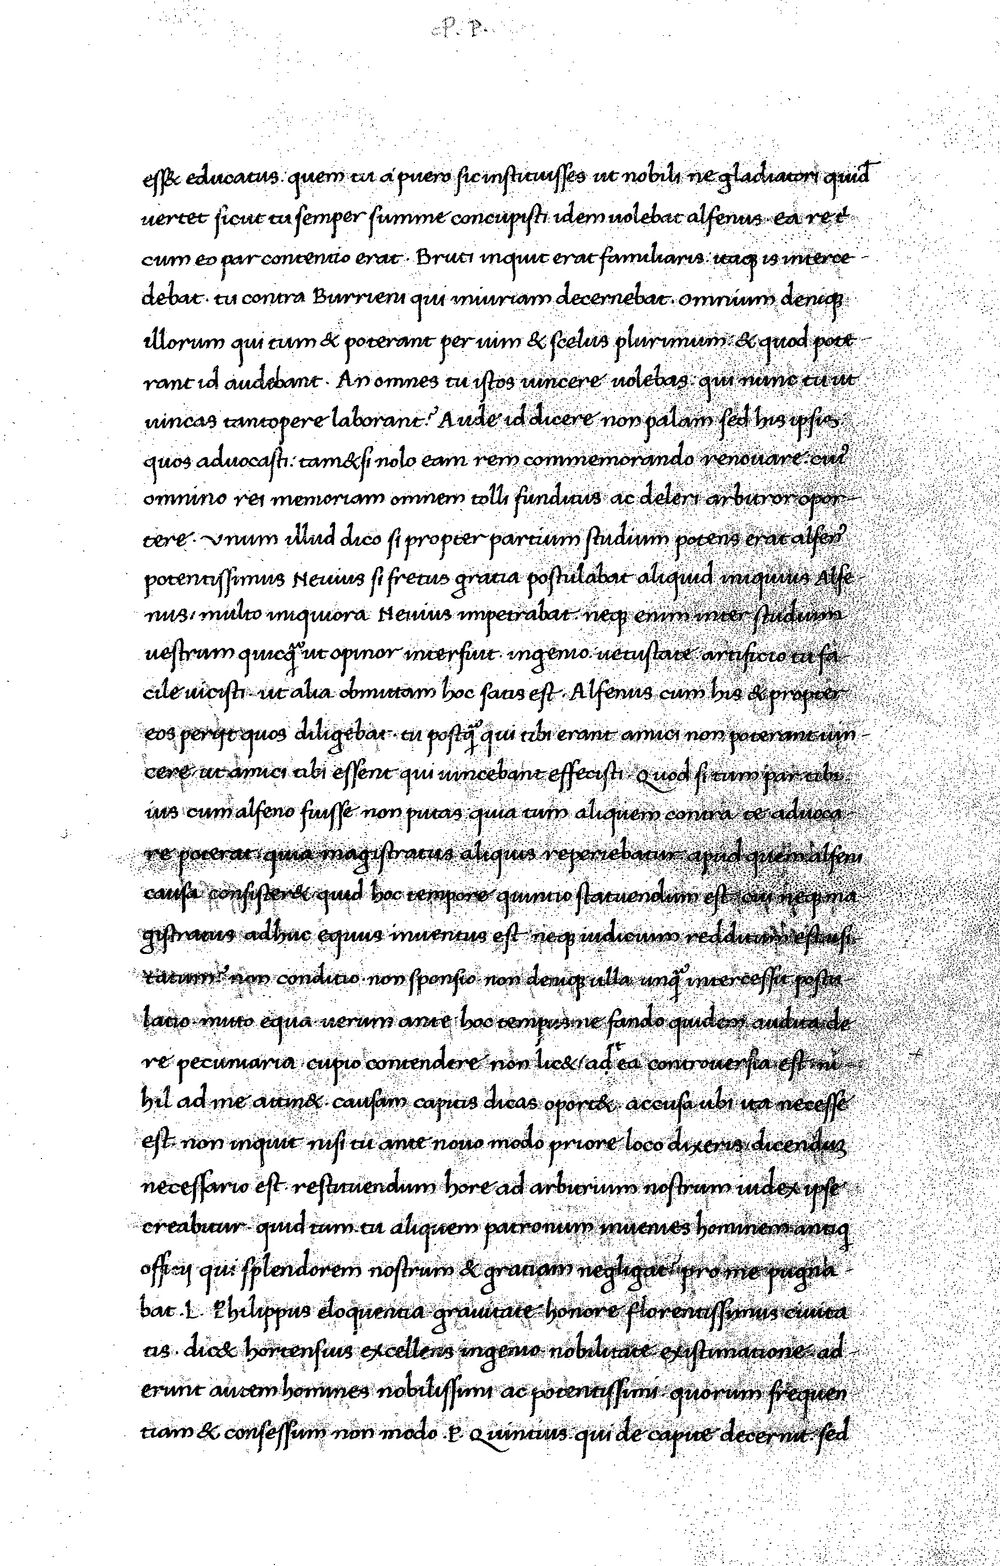 P. P.
ess& educatus. quem tu a puero sic instituisses ut nobili ne gladiatori quid
uertet sicut tu semper summe concupisti idem uolebat alfenus. ea re t̄
cum eo par contentio erat. Bruti inquit erat familiaris. itaq; is interce-
debat. tu contra Burrieni qui iniuriam decernebat. omnium deniq;
illorum qui tum & poterant per uim & scelus plurimum. & quod pote-
rant id audebant. An omnes tu istos uincere uolebas. qui nunc tu ut
uincas tantopere laborant? Aude id dicere non palam sed his ipsis
quos aduocasti. tam&si nolo eam rem commemorando renouare. cuī
omnino rei memoriam omnem tolli funditus ac deleri arbitror opor-
tere. Vnum illud dico si propter partium studium potens erat alfen'
potentissimus Neuius si fretus gratia postulabat aliquid iniquius Alfe-
nus, multo iniquiora Neuius impetrabat. neq; enim inter studium
uestrum quicq̃ ut opinor interfuit. ingenio. uetustate artificio tu fa-
cile uicisti. ut alia obmittam hoc satis est. Alfenus cum his & propter
eos periit quos diligebat. tu postq̃ qui tibi erant amici non poterant uin-
cere. ut amici tibi essent qui uincebant effecisti. Quod si tum par tibi
ius cum alfeno fuisse non putas quia tum aliquem contra te aduoca-
re poterat. quia magistratus aliquis reperiebatur apud quem alfeni
causa consister& quid hoc tempore quintio statuendum est. cui neq; ma
gistratus adhuc equus inuentus est neq; iudicium redditum est usi
tatum? non conditio non sponsio non deniq; ulla unq̃ intercessit postu-
latio. mitto equa uerum ante hoc tempus ne fando quidem audita de
re pecuniaria cupio contendere non lic& ad ea controuersia est. ni-
hil ad me attin&. causam capitis dicas oport&. accusa ubi ita necesse
est. non inquit nisi tu ante nouo modo priore loco dixeris dicendum
necessario est. restituendum hore ad arbitrium nostrum iudex ipse
creabitur. quid tum. tu aliquem patronum inuenies hominem antiq
officij qui splendorem nostrum & gratiam negligat? pro me pugna-
bat .L. Philippus eloquentia grauitate honore florentissimus ciuita
tis. dic& hortensius excellens ingenio nobilitate existimatione. ad-
erunt autem homines nobilissimi ac potentissimi. quorum frequen
tiam & consessum non modo .P. Quintius. qui de capite decernit. sed